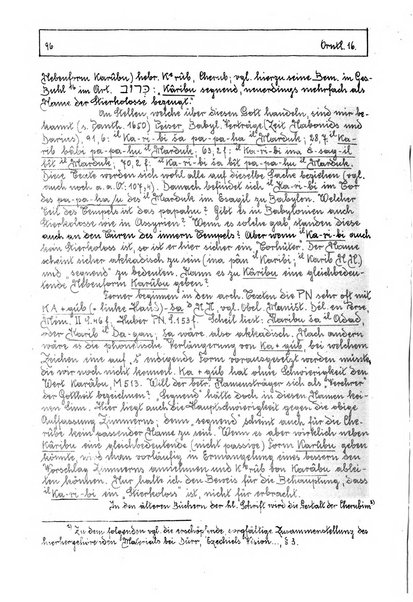 96 Orntl. 16.
Nebenform Karûbu) hebr. Kᵉrûb, Cherub, vgl. hierzu seine Bem. in Ges-
Buhl ¹⁶ im Art. כְּרוּב: "Kâribu segnend, neuerdings mehrfach als
Name der Stierkolosse bezeugt."
An Stellen, welche über diesen Gott handeln, sind mir be-
kannt (s. Panth. 1650) Peiser, Babyl. Verträge (Zeit Nabonids und
Darius), 91,6: ilKa-ri-bi ša pa-pa-hu ilMarduk; 28,7 ilKa-
rib bâbi pa-pa-hu ilMarduk; 63,2f: ilKa-ri-bi ina é-sag-il
bît ilMarduk; 70,2f.: ilKa-ri-bi ša bît pa-pa-hu ilMarduk.
Diese Texte werden sich wohl alle auf dieselbe Sache beziehen (vgl.
auch noch a.a.O. 107,4). Danach befindet sich ilKa-ri-bi im Tor
des pa-pa-ha/u des ilMarduk im Esagil zu Babylon. Welcher
Teil des Tempels ist das papahu? Gibt es in Babylonien auch
Stierkolosse wie in Assyrien? Wenn es solche gab, standen diese
auch an den Türen des innern Tempels? Aber wenn ilKa-ri-bi auch
kein Stierkoloss ist, so ist er hier sicher ein Torhüter. Der Name
scheint sicher akkadisch zu sein (ina pân ilKaribi, ilKarib N.N.)
und "segnend" zu bedeuten. Kann es zu Kâribu eine gleichbedeu-
tende Nebenform Karûbu geben?
Ferner beginnen in den arch. Texten die PN sehr oft mit
KA + šub (+ linke Hand)- ša, N.N., vgl. Obel. Maništ. Dél. en Perse,
Mém. II S. 46 f. Huber PN S. 153 f. Scheil liest: Kâribu ša Adad
oder Karib il Da-gan, es wäre also akkadisch. Nach andern
wäre es die phonetische Verlängerung von Ka + šub, bei welchem
Zeichen eine auf š endigende Form vorausgesetzt werden müsste,
die wir noch nicht kennen. Ka + šub hat ohne Schwierigkeit den
Wert Karâbu, M 513. Will der betr. Namensträger sich als "Verehrer"
der Gottheit bezeichnen? "Segnend" hätte doch in diesen Namen kei-
nen Sinn. Hier liegt auch die Hauptschwierigkeit gegen die obige
Auffassung Zimmerns; denn "segnend" scheint auch für die Che-
rube kein passender Name zu sein. Wenn es aber wirklich neben
Kâribu eine gleichbedeutende (nicht passive) Form Karûbu geben
könnte, wird man vorläufig in Ermangelung eines bessern den
Vorschlag Zimmerns annehmen und Kᵉrûb von Karâbu ablei-
ten können. Nur halte ich den Beweis für die Behauptung, dass
ilKa-ri-bi ein "Stierkoloss" ist, nicht für erbracht.
In den älteren Büchern der hl. Schrift wird die Gestalt der Cherubim ²⁾
²⁾ Zu dem folgenden vgl. die erschöpfende, sorgfältige Zusammenstellung des
hierhergehörenden Materials bei Dürr, Ezechiels Vision..., § 3.